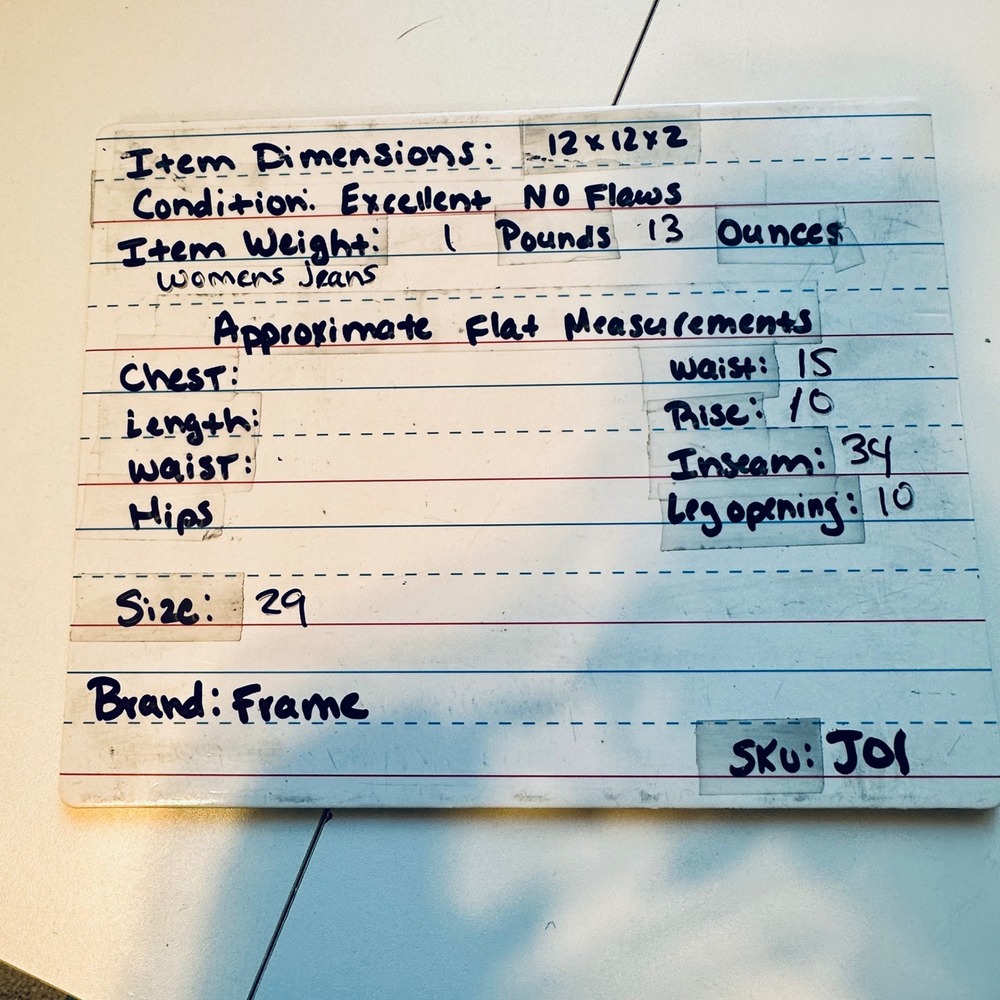 Item Dimensions: 12x12x2
Condition: Excellent NO Flaws
Item Weight: 1 Pounds 13 Ounces
Womens Jeans
Approximate Flat Measurements
Chest: Waist: 15
Length: Rise: 10
Waist: Inseam: 34
Hips Leg opening: 10
Size: 29
Brand: Frame
SKU: J01